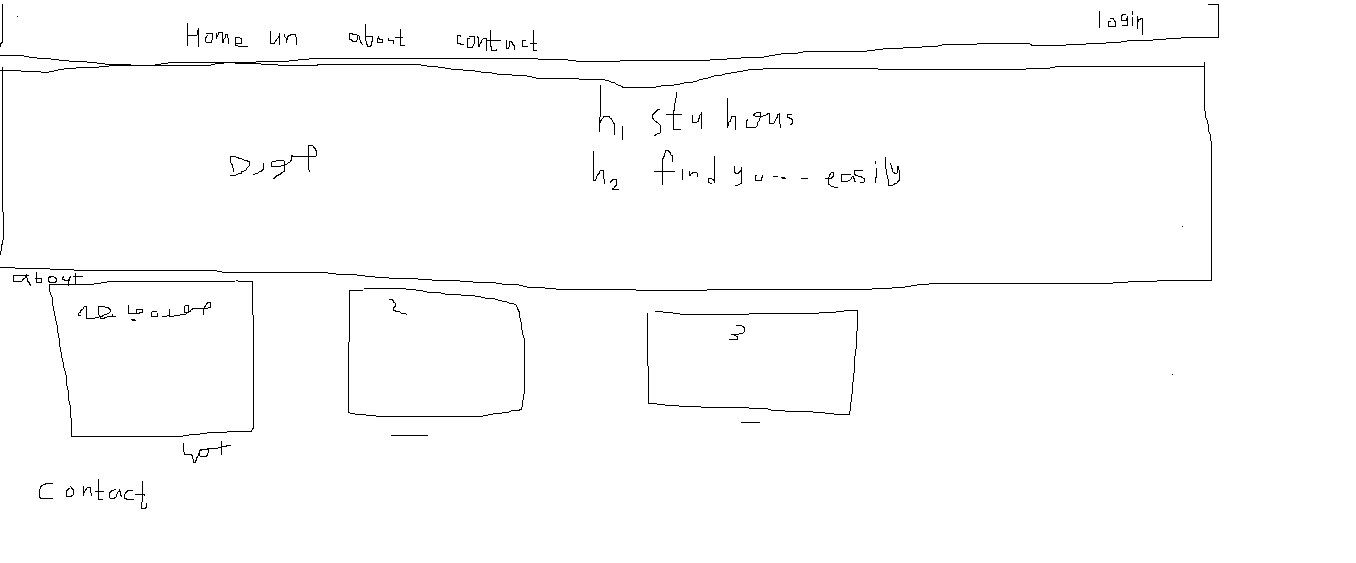 Home un about contact login
h1 stu hous
h2 find you --- easily
about
2
3
contact